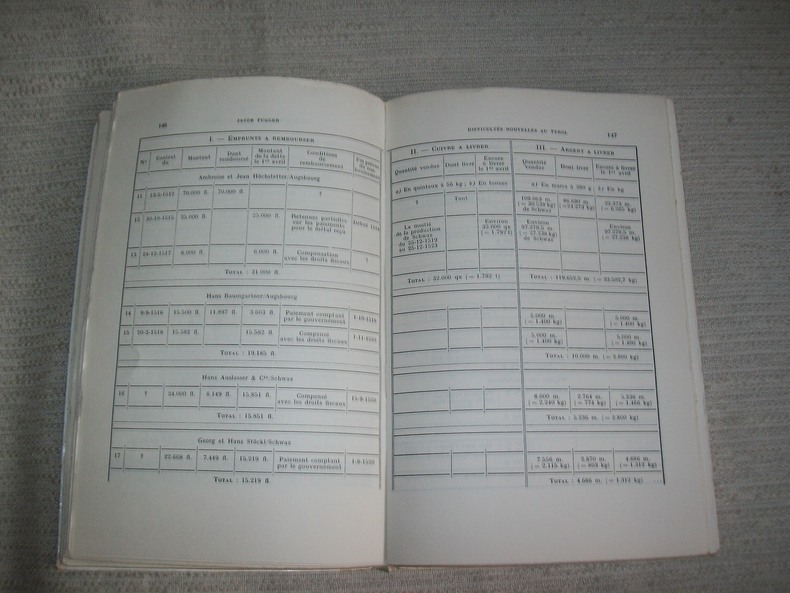 146
JACOB FUGGER
I. — EMPRUNTS A REMBOURSER
N° Contrat du Montant Dont remboursé Montant de la dette le 1er avril Conditions de remboursement
Ambroise et Jean Höchstetter/Augsbourg
11 70.000 fl. 70.000 fl. ?
12 25.000 fl. 25.000 fl. Retenues partielles
sur les paiements
pour le métal reçu
13 24-12-1517 6.000 fl. 6.000 fl. Compensation
avec les droits fiscaux ?
TOTAL : 31.000 fl.
Hans Baumgartner/Augsbourg
14 9-9-1518 15.500 fl. 11.897 fl. 3.603 fl. Paiement comptant
par le gouvernement
15 15.582 fl. 15.582 fl. Compensé
avec les droits fiscaux
TOTAL : 19.185 fl.
& Cie/Schwaz
16 ? 24.000 fl. 8.149 fl. 15.851 fl. Compensé
avec les droits fiscaux
TOTAL : 15.851 fl.
Georg et Hans Stöckl/Schwaz
17 ? 22.668 fl. 7.449 fl. 15.219 fl. Paiement comptant
par le gouvernement
TOTAL : 15.219 fl.
DIFFICULTÉS NOUVELLES AU TYROL
147
II. — CUIVRE A LIVRER
III. — ARGENT A LIVRER
Quantité vendue Dont livré Encore à livrer le 1er avril
Quantité vendue Dont livré Encore à livrer le 1er avril
a) En quintaux à 56 kg ; b) En tonnes
a) En marcs à 280 g ; b) En kg
? Tout
de Schwaz
La moitié
de la production
de Schwaz
Environ
32.000 qx
(= 1.792 t)
Environ
97.278,5 m
(= 27.238 kg)
de Schwaz
Environ
97.278,5 m.
(= 27.238 kg)
TOTAL : 32.000 qx (= 1.792 t)
TOTAL : 119.652,5 m.
5.000 m.
(= 1.400 kg)
5.000 m.
(= 1.400 kg)
5.000 m.
(= 1.400 kg)
5.000 m.
(= 1.400 kg)
TOTAL : 10.000 m. (= 2.800 kg)
8.000 m.
(= 2.240 kg)
2.764 m.
(= 774 kg)
TOTAL
7.556 m.
(= 2.115 kg)
2.870 m.
(= 803 kg)
4.686 m.
(= 1.312 kg)
TOTAL : 4.686 m. (= 1.312 kg)